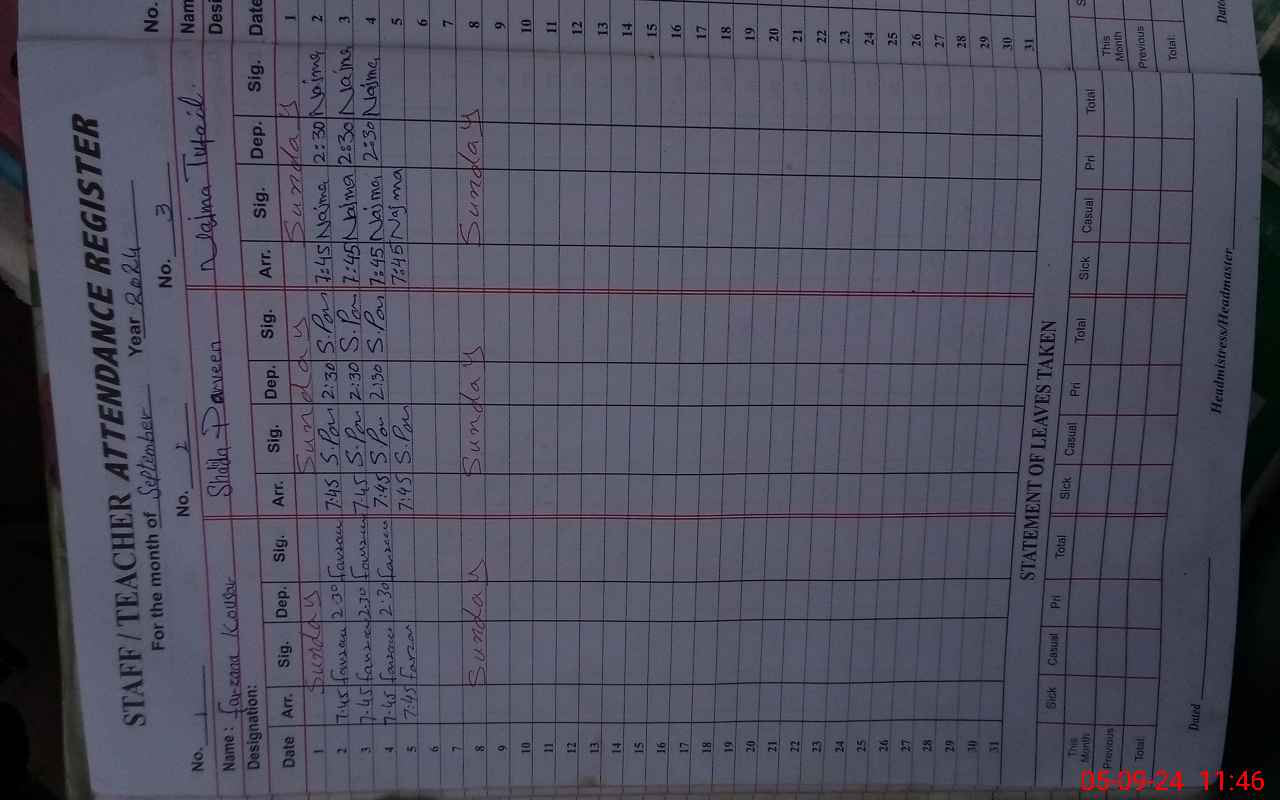 STAFF / TEACHER ATTENDANCE REGISTER
For the month of September Year 2024
No. 1 No. 2 No. 3 No.
Name : Farzana Kousar Shaida Parveen Najma Tufail Nam
Designation: Desi
Date Arr. Sig. Dep. Sig. Arr. Sig. Dep. Sig. Arr. Sig. Dep. Sig. Date
1 Sunday Sunday Sunday 1
2 7:45 2:30 7:45 S.Par 2:30 S.Par 7:45 Najma 2:30 Najma 2
3 7:45 2:30 7:45 S.Par 2:30 S.Par 7:45 Najma 2:30 Najma 3
4 7:45 2:30 7:45 S.Par 2:30 S.Par 7:45 Najma 2:30 Najma 4
5 7:45 7:45 S.Par 7:45 Najma 5
6 6
7 7
8 Sunday Sunday Sunday 8
9 9
10 10
11 11
12 12
13 13
14 14
15 15
16 16
17 17
18 18
19 19
20 20
21 21
22 22
23 23
24 24
25 25
26 26
27 27
28 28
29 29
30 30
31 31
STATEMENT OF LEAVES TAKEN
Sick Casual Pri Total Sick Casual Pri Total Sick Casual Pri Total S
This Month This Month
Previous Previous
Total Total:
Dated Headmistress/Headmaster Date
05-09-24 11:46